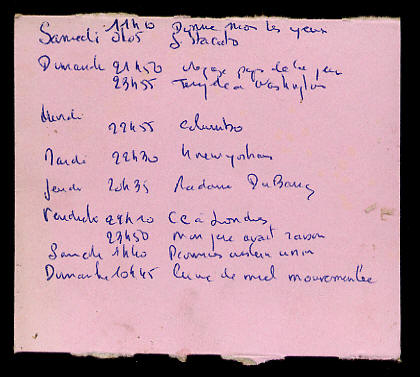 11h40 Donne moi tes yeux
Samedi 0h05 Staccato
Dimanche 21h50 Voyage pays de la peur
23h55 Temple Washington
Lundi
22h55 Columbo
Mardi 22h30 Knewyorkais
Jeudi 20h35 Madame DuBarry
Vendredi 22h20 CC à Londres
23h50 mon père avait raison
Samedi 1h40 Pionniers western union
Dimanche 10h45 Lune de miel mouvementée